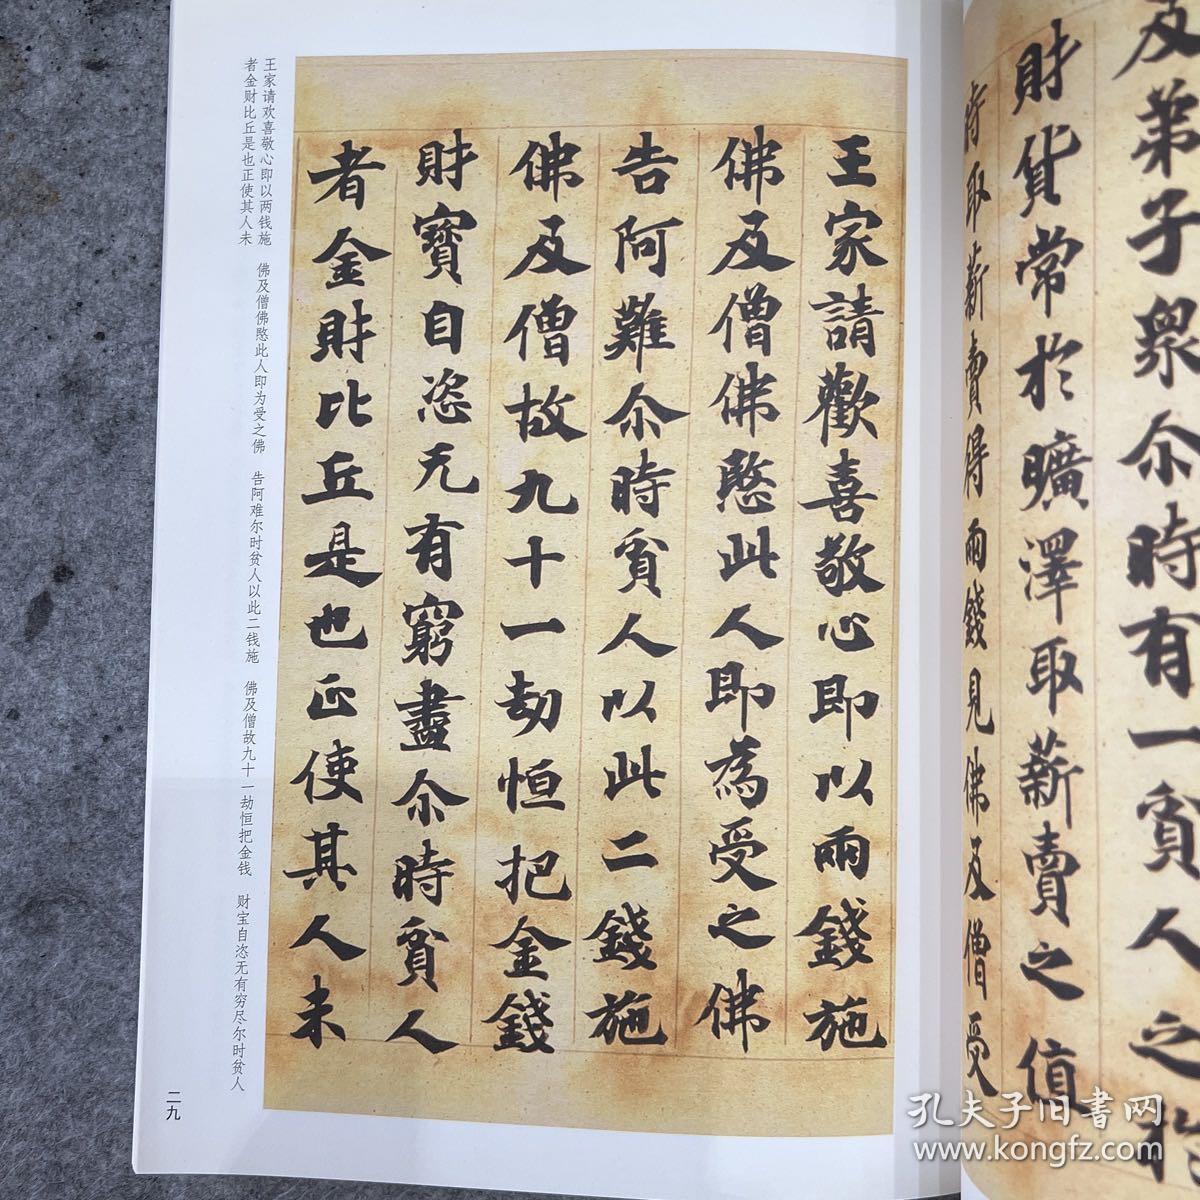 及弟子眾尒時有一貧人之於
財貨常於曠澤取薪賣之值
時取薪賣得兩錢見佛及僧受
王家請歡喜敬心即以兩錢施
佛及僧佛愍此人即為受之佛
告阿難尒時貧人以此二錢施
佛及僧故九十一劫恒把金錢
財寶自恣无有窮盡尒時貧人
者金財比丘是也正使其人未
王家请欢喜敬心即以两钱施 佛及僧佛愍此人即为受之佛 告阿难尔时贫人以此二钱施 佛及僧故九十一劫恒把金钱 财宝自恣无有穷尽尔时贫人
者金财比丘是也正使其人未
二九
孔夫子旧书网
www.kongfz.com